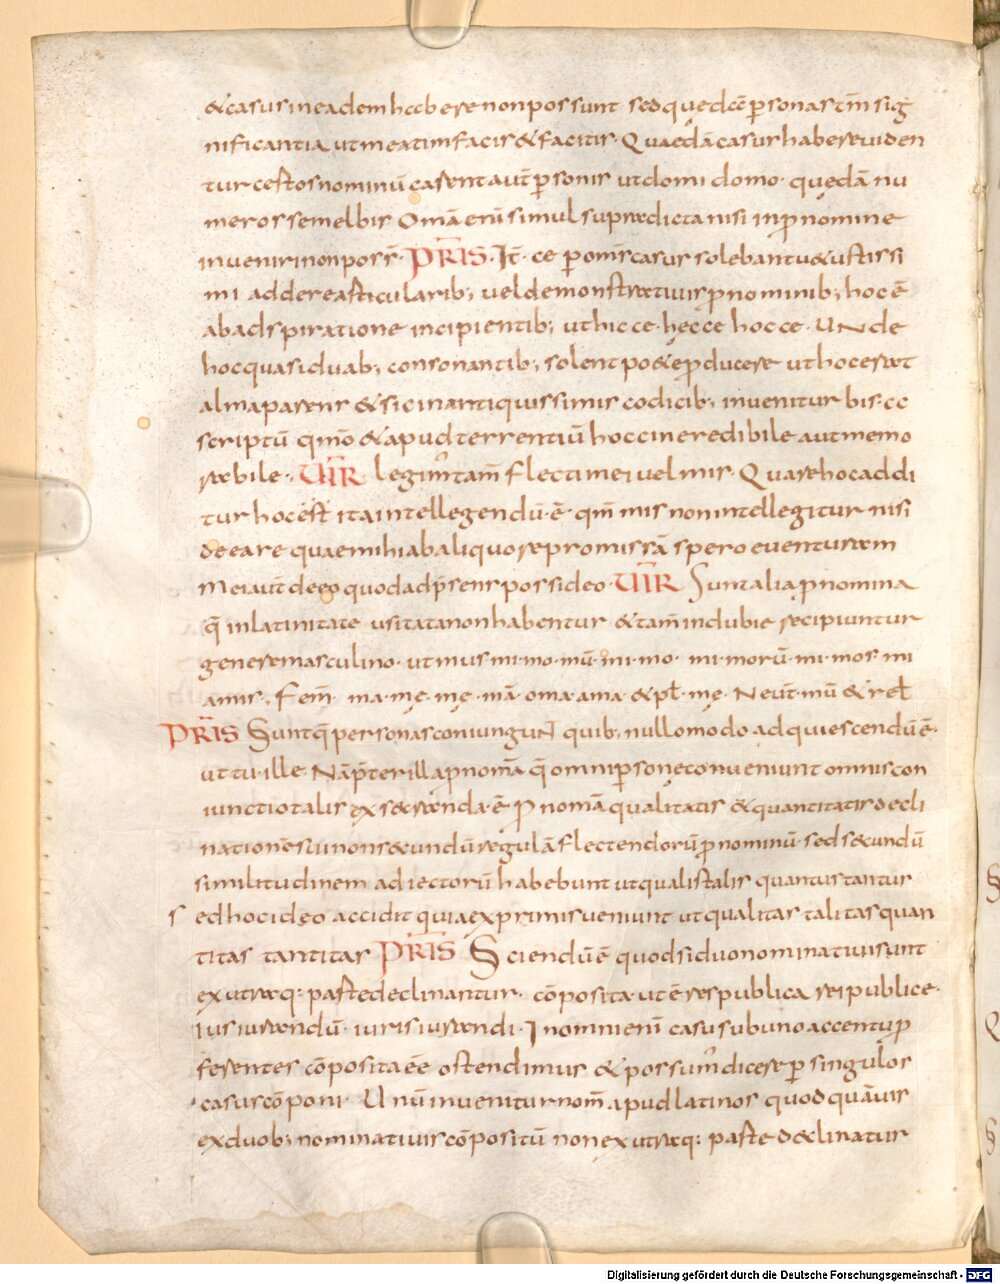 &casus in eadem habere non possunt sed quedā personas tm̄ sig
nificantia ut meatim facis & facitis · Quaedā casus habere viden
tur ceſtos nominū carent aut̄ personis ut domi domo · quedā nu
meros semel bis Omā enī simul supradicta nisi in pnomine
inveniri non poss̄ · PR̄IS · It̄ · ce p omīs casus solebant vetustissi
mi addere articularib; vel demonstrativis pnominib; hoc ē
ab adspiratione incipientib; ut hicce · hęcce hocce · Unde
hoc quasi duab; consonantib; solent poetę pducere ut hoc erat
alma parens & sic in antiquissimis codicib; invenitur bis · cc
scriptū qm̄o & apud terrentiū hoccine credibile aut memo
rabile · UĪR legim̄ tam̄ flecti mei vel mis · Quare hoc addi
tur hoc est ita intellegendū · ē · qm̄ mis non intellegitur nisi
de ea re quae mihi ab aliquo repromissā spero eventuram
Mei aut̄ de eo quod adp̄sens possideo · UĪR Sunt alia pnomina
q̄ in latinitate usitata non habentur & tam̄ indubie recipiuntur
genere masculino · ut mus · mi · mo · mū · mi · mo · mi · morū · mi · mos · mi
amis · Fem̄ · ma · mę · mę · mā · o ma · a ma · & pl̄ · mę · Neut̄ · mū & rel̄
PR̄IS Sunt q̄ personas coniungunt quib; nullo modo adquiescendū ē ·
ut tu · ille · Nā p̄ter illa pnom̄a q̄ omni personę conveniunt omnis con
iunctio talis exsecranda · ē · Pnom̄a qualitatis & quantitatis decli
nationēs ii non secundū regulā flectendorū pnominū · sed secundū
similitudinem adiectorū habebunt ut qualis talis quantus tantus
sed hoc ideo accidit quia ex primis veniunt ut qualitas talitas quan
titas tantitas PR̄IS Sciendū ē quod si duo nominativi sunt
ex utraq: parte declinantur · cōposita · ut ē respublica reipublicę ·
Iusiurandū · iurisiurandi · In omni enī casu sub uno accentu p
ferentes cōposita ēē ostendimus & possum̄ dicere p singulos
casus cōponi · Unū invenitur nom̄ apud latinos quod quāvis
ex duob; nominativis cōpositū non ex utraq: parte declinatur
Digitalisierung gefördert durch die Deutsche Forschungsgemeinschaft - DFG